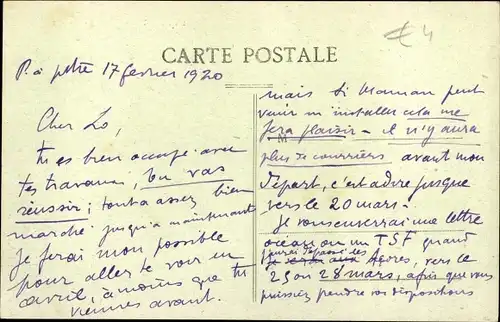 CARTE POSTALE
€ 4
P. à pitre 17 février 1920
Cher Lo,
tu es bien occupé avec
tes travaux, tu vas
réussir; tout a assez bien
marché jusqu'à maintenant
Je ferai mon possible
pour aller te voir en
avril, à moins que tu
viennes avant.
mais si Maman peut
venir m'installer cela me
fera plaisir - il n'y aura
plus de courriers avant mon
départ, c'est à dire jusque
vers le 20 mars.
Je vous enverrai une lettre
océan ou un TSF quand
j'aurai dépassé les
Açores, vers le
25 ou 28 mars, afin que vous
puissiez prendre vos dispositions